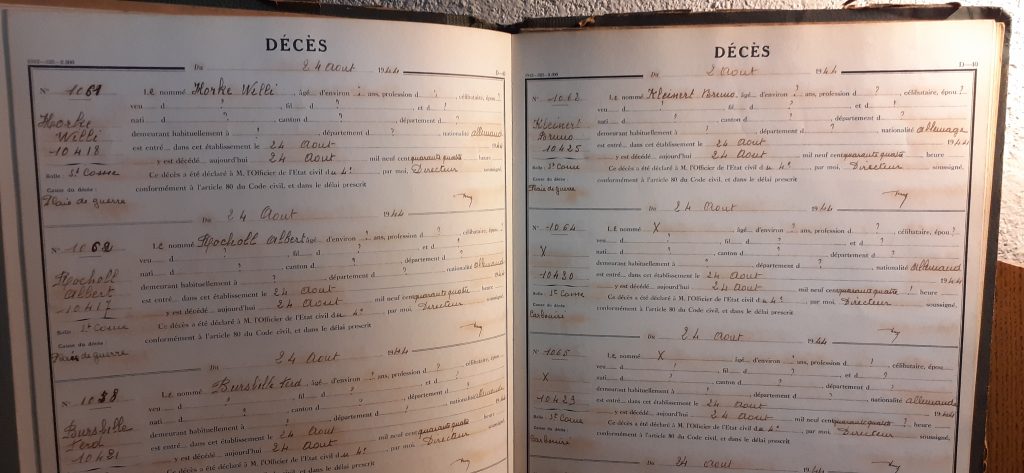 DÉCÈS
Du 24 Aout 1944
D—40
N° 1061 Le nommé Horke Willi, âgé d'environ ? ans, profession d ?, célibataire, épou ?
veu d ?, fil d ?, et d ?
Horke nati d ?, canton d ?, département d ?
Willi demeurant habituellement à ?, département d ?, nationalité allemand
10418 est entré dans cet établissement le 24 Aout 1944
y est décédé aujourd'hui 24 Aout mil neuf cent quarante quatre heure
Salle : St Come Ce décès a été déclaré à M. l'Officier de l'Etat civil du 4e, par moi, Directeur soussigné,
Cause du décès : conformément à l'article 80 du Code civil, et dans le délai prescrit
Plaie de guerre
Du 24 Aout 1944
N° 1062 Le nommé Hocholl Albert, âgé d'environ ? ans, profession d ?, célibataire, épou ?
veu d ?, fil d ?, et d ?
Hocholl nati d ?, canton d ?, département d ?
Albert demeurant habituellement à ?, département d ?, nationalité allemand
10417 est entré dans cet établissement le 24 Aout 1944
y est décédé aujourd'hui 24 Aout mil neuf cent quarante quatre heure
Salle : St Come Ce décès a été déclaré à M. l'Officier de l'Etat civil du 4e, par moi, Directeur soussigné,
Cause du décès : conformément à l'article 80 du Code civil, et dans le délai prescrit
Plaie de guerre
Du 24 Aout 1944
N° Le nommé Ferd, âgé d'environ ? ans, profession d ?, célibataire, épou ?
veu d ?, fil d ?, et d ?
nati d ?, canton d ?, département d ?
Ferd demeurant habituellement à ?, département d ?, nationalité allemande
est entré dans cet établissement le 24 Aout 1944
y est décédé aujourd'hui 24 Aout mil neuf cent quarante quatre heure
Salle : St Come Ce décès a été déclaré à M. l'Officier de l'Etat civil du 4e, par moi, Directeur soussigné,
conformément à l'article 80 du Code civil, et dans le délai prescrit
DÉCÈS
Du 2 Aout 1944
D—40
N° Le nommé Kleinert Bruno, âgé d'environ ? ans, profession d ?, célibataire, épou ?
veu d ?, fil d ?, et d ?
Kleinert nati d ?, canton d ?, département d ?
Bruno demeurant habituellement à ?, département d ?, nationalité
10425 est entré dans cet établissement le 24 Aout 1944
y est décédé aujourd'hui 24 Aout mil neuf cent quarante quatre heure
Salle : St Come Ce décès a été déclaré à M. l'Officier de l'Etat civil du 4e, par moi, Directeur soussigné,
Cause du décès : conformément à l'article 80 du Code civil, et dans le délai prescrit
Plaie de guerre
Du 24 Aout 1944
N° 1064 Le nommé X, âgé d'environ ? ans, profession d ?, célibataire, épou ?
veu d ?, fil d ?, et d ?
X nati d ?, canton d ?, département d ?
demeurant habituellement à ?, département d ?, nationalité allemand
est entré dans cet établissement le 24 Aout 1944
y est décédé aujourd'hui 24 Aout mil neuf cent quarante quatre ? heure
Salle : St Come Ce décès a été déclaré à M. l'Officier de l'Etat civil du 4e, par moi, Directeur soussigné,
Cause du décès : conformément à l'article 80 du Code civil, et dans le délai prescrit
Carbonisé
Du 24 Aout 1944
N° 1065 Le nommé X, âgé d'environ ? ans, profession d ?, célibataire, épou ?
veu d ?, fil d ?, et d ?
X nati d ?, canton d ?, département d ?
demeurant habituellement à ?, département d ?, nationalité allemande
est entré dans cet établissement le 24 Aout 1944
y est décédé aujourd'hui 24 Aout mil neuf cent quarante quatre heure
Salle : St Come Ce décès a été déclaré à M. l'Officier de l'Etat civil du 4e, par moi, Directeur soussigné,
Cause du décès : conformément à l'article 80 du Code civil, et dans le délai prescrit
Carbonisé
24 Aout 1944